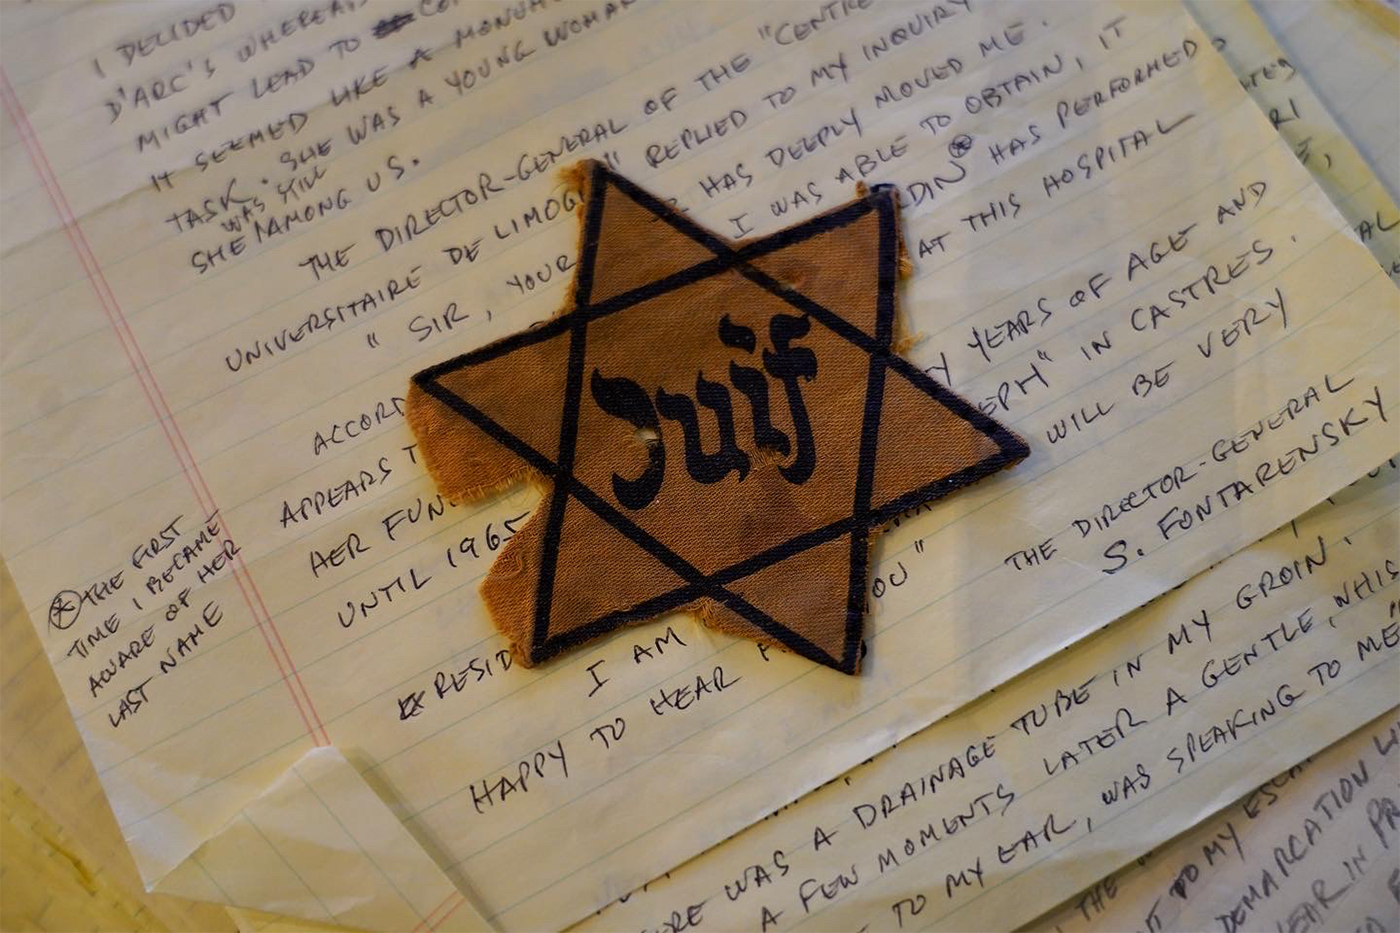 I DECIDED
D'ARC'S WHEREAB
MIGHT LEAD TO
IT SEEMED LIKE A MONUM
TASK. SHE WAS A YOUNG WOMAN
WAS STILL
SHE AMONG US.
THE DIRECTOR-GENERAL OF THE "CENTRE
UNIVERSITAIRE DE LIMOG " REPLIED TO MY INQUIRY
" SIR, YOUR HAS DEEPLY MOVED ME.
ACCORD I WAS ABLE TO OBTAIN, IT
APPEARS T DIN HAS PERFORMED
HER FUN AT THIS HOSPITAL
UNTIL 1965
Y YEARS OF AGE AND
RESID EPH" IN CASTRES.
I AM WILL BE VERY
HAPPY TO HEAR OU"
THE DIRECTOR-GENERAL
S. FONTARENSKY
Juif
THE FIRST
TIME I BECAME
AWARE OF HER
LAST NAME
ERE WAS A DRAINAGE TUBE IN MY GROIN.
A FEW MOMENTS LATER A GENTLE, WHIS
TO MY EAR, WAS SPEAKING TO ME
THE
TO MY ESCA
DEMARCATION LI
YEAR IN PR